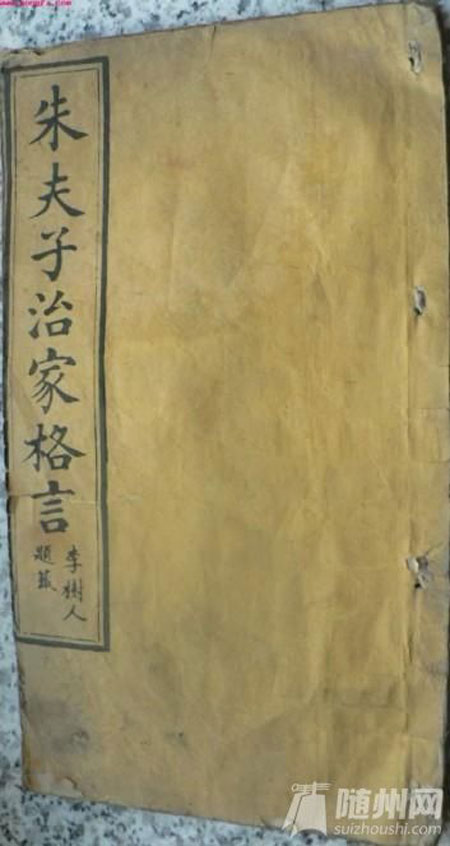 朱夫子治家格言
李樹人
題籤
随州网
suizhoushi.com